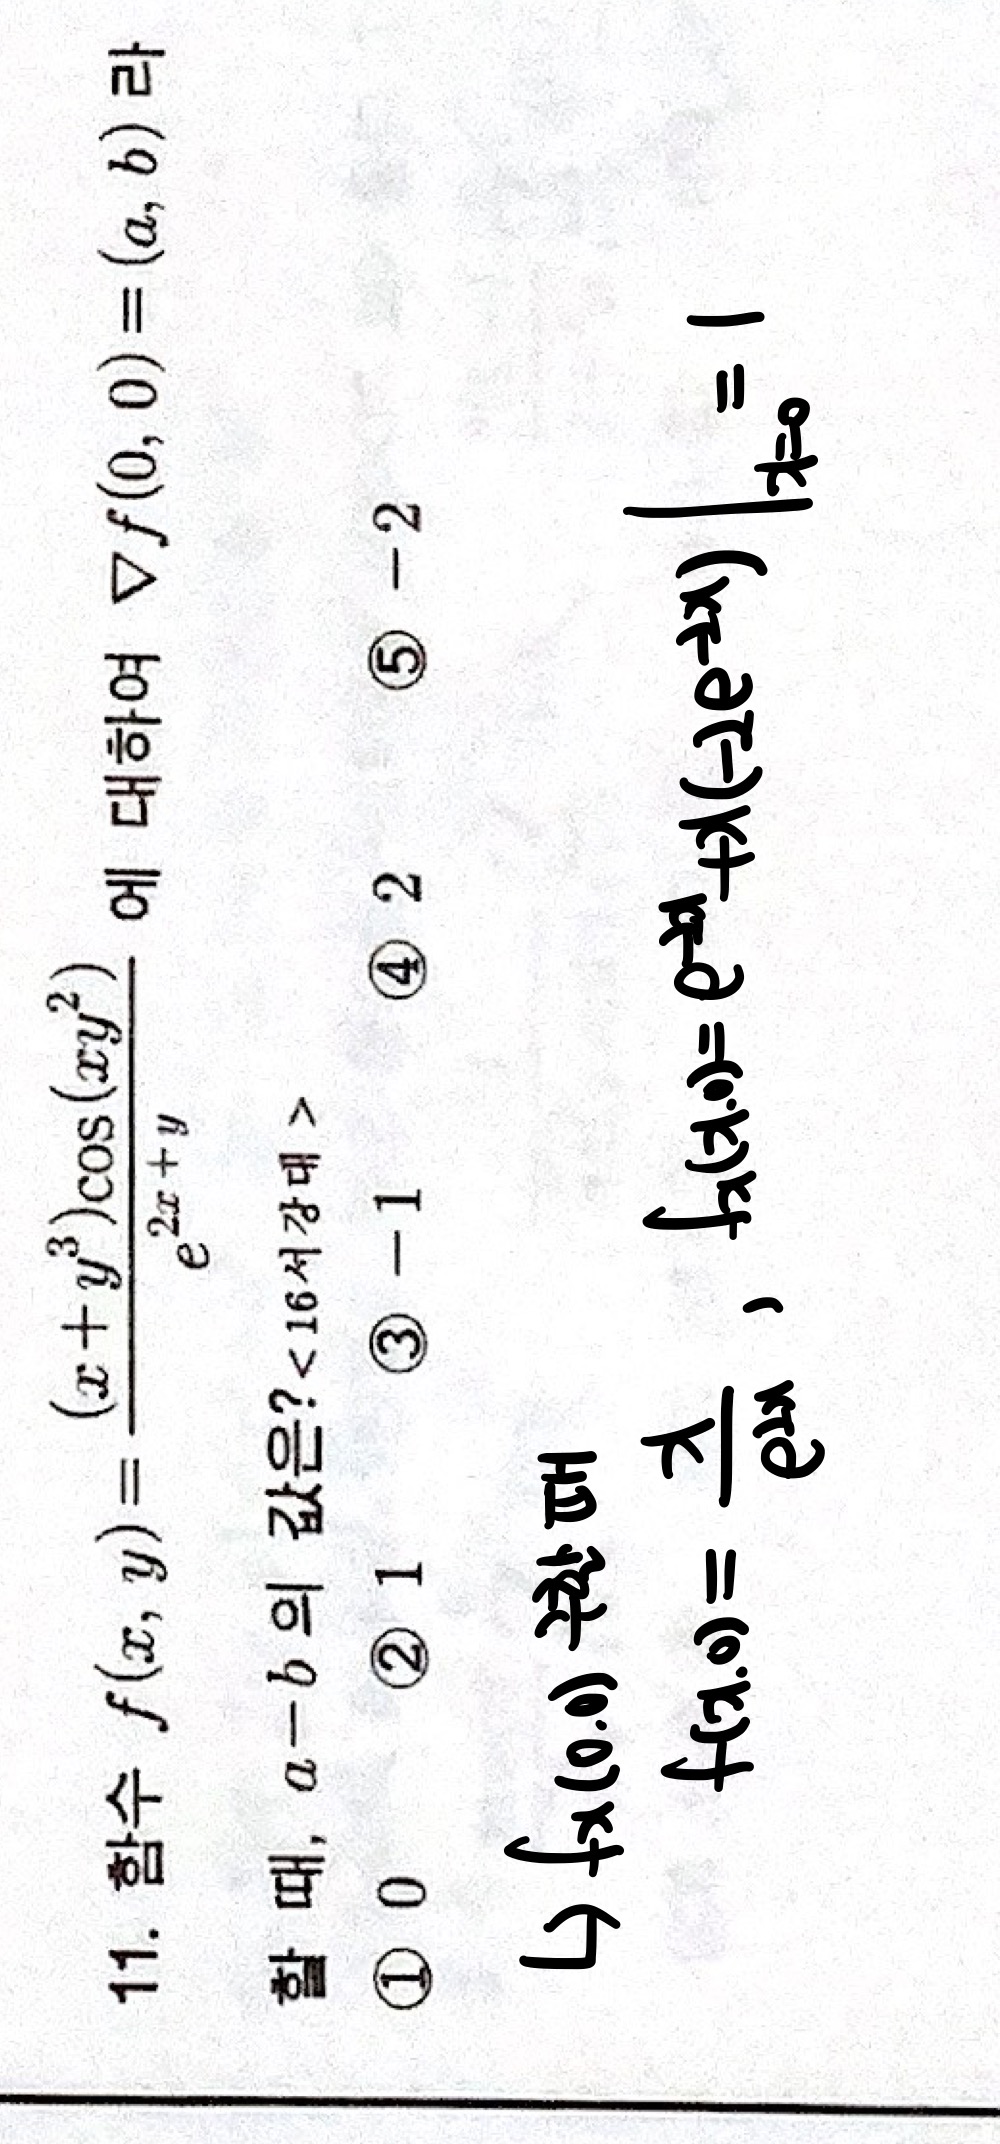 11. 함수 f(x, y) = (x+y³)cos(xy²) / e^(2x+y) 에 대하여 ▽f(0, 0) = (a, b) 라
할 때, a-b 의 값은? <16서강대>
① 0 ② 1 ③ -1 ④ 2 ⑤ -2
↳ fx(0.0) 구할 때
f(x.0) = x / e^(2x) , fx(x.0) = e^(-2x) + x(-2e^(-2x)) |x=0 = 1